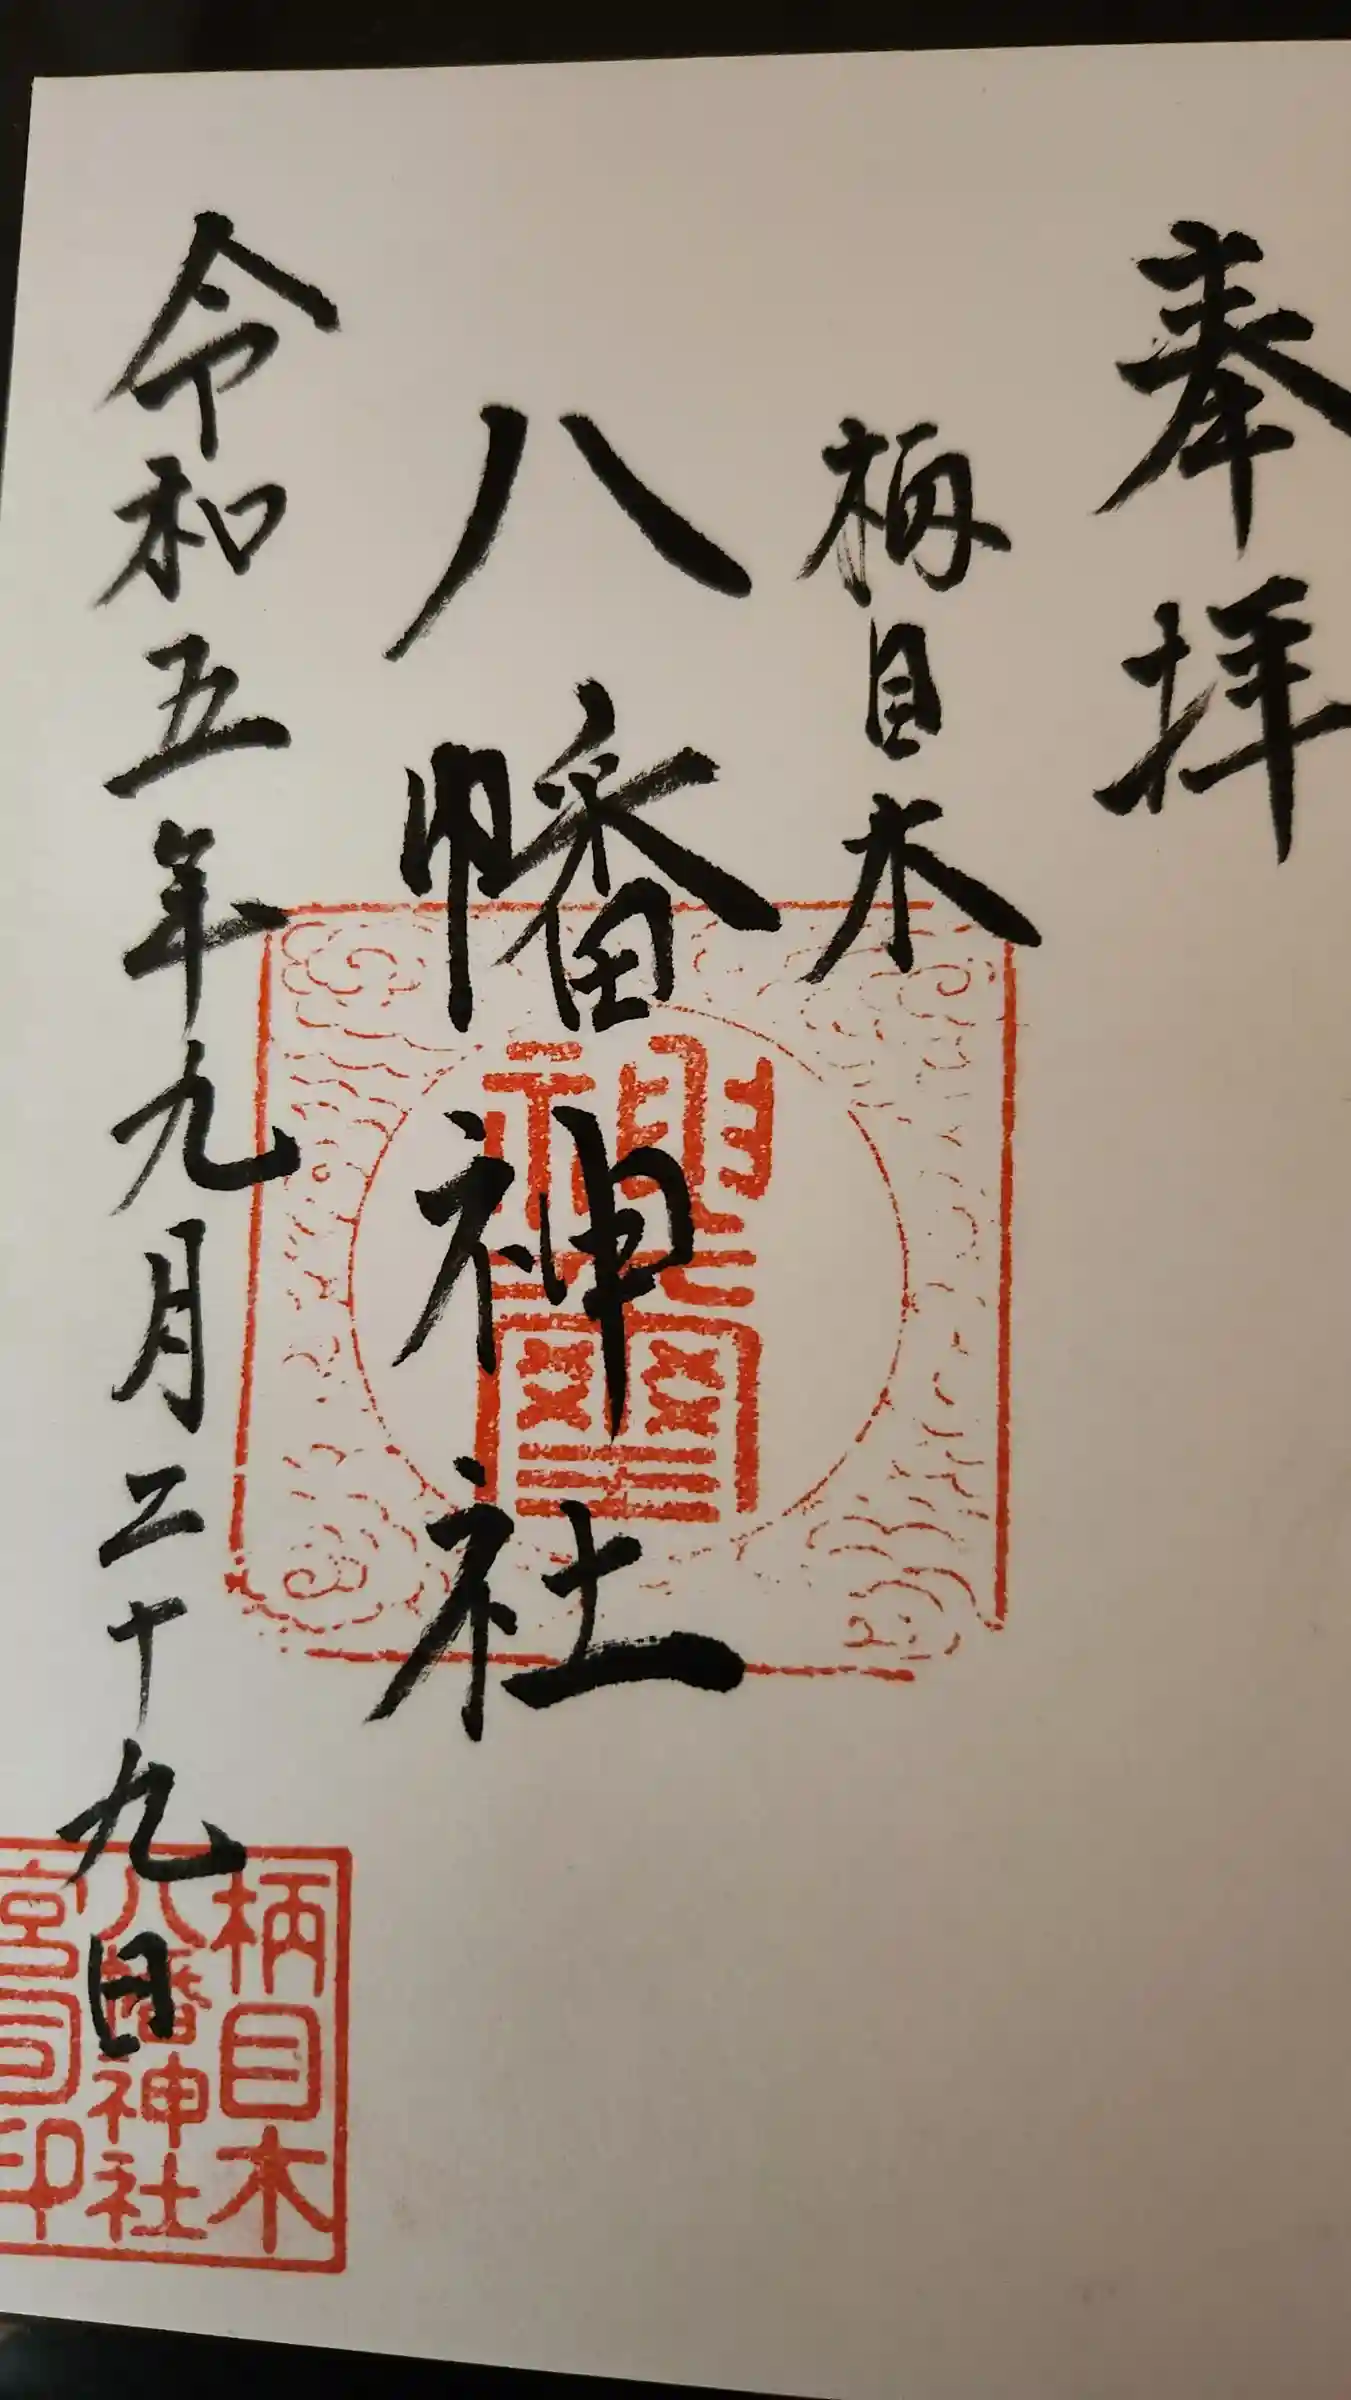 奉拝
柄目木
八幡神社
令和五年九月二十九日
神璽
柄目木
八幡神社
宮司印